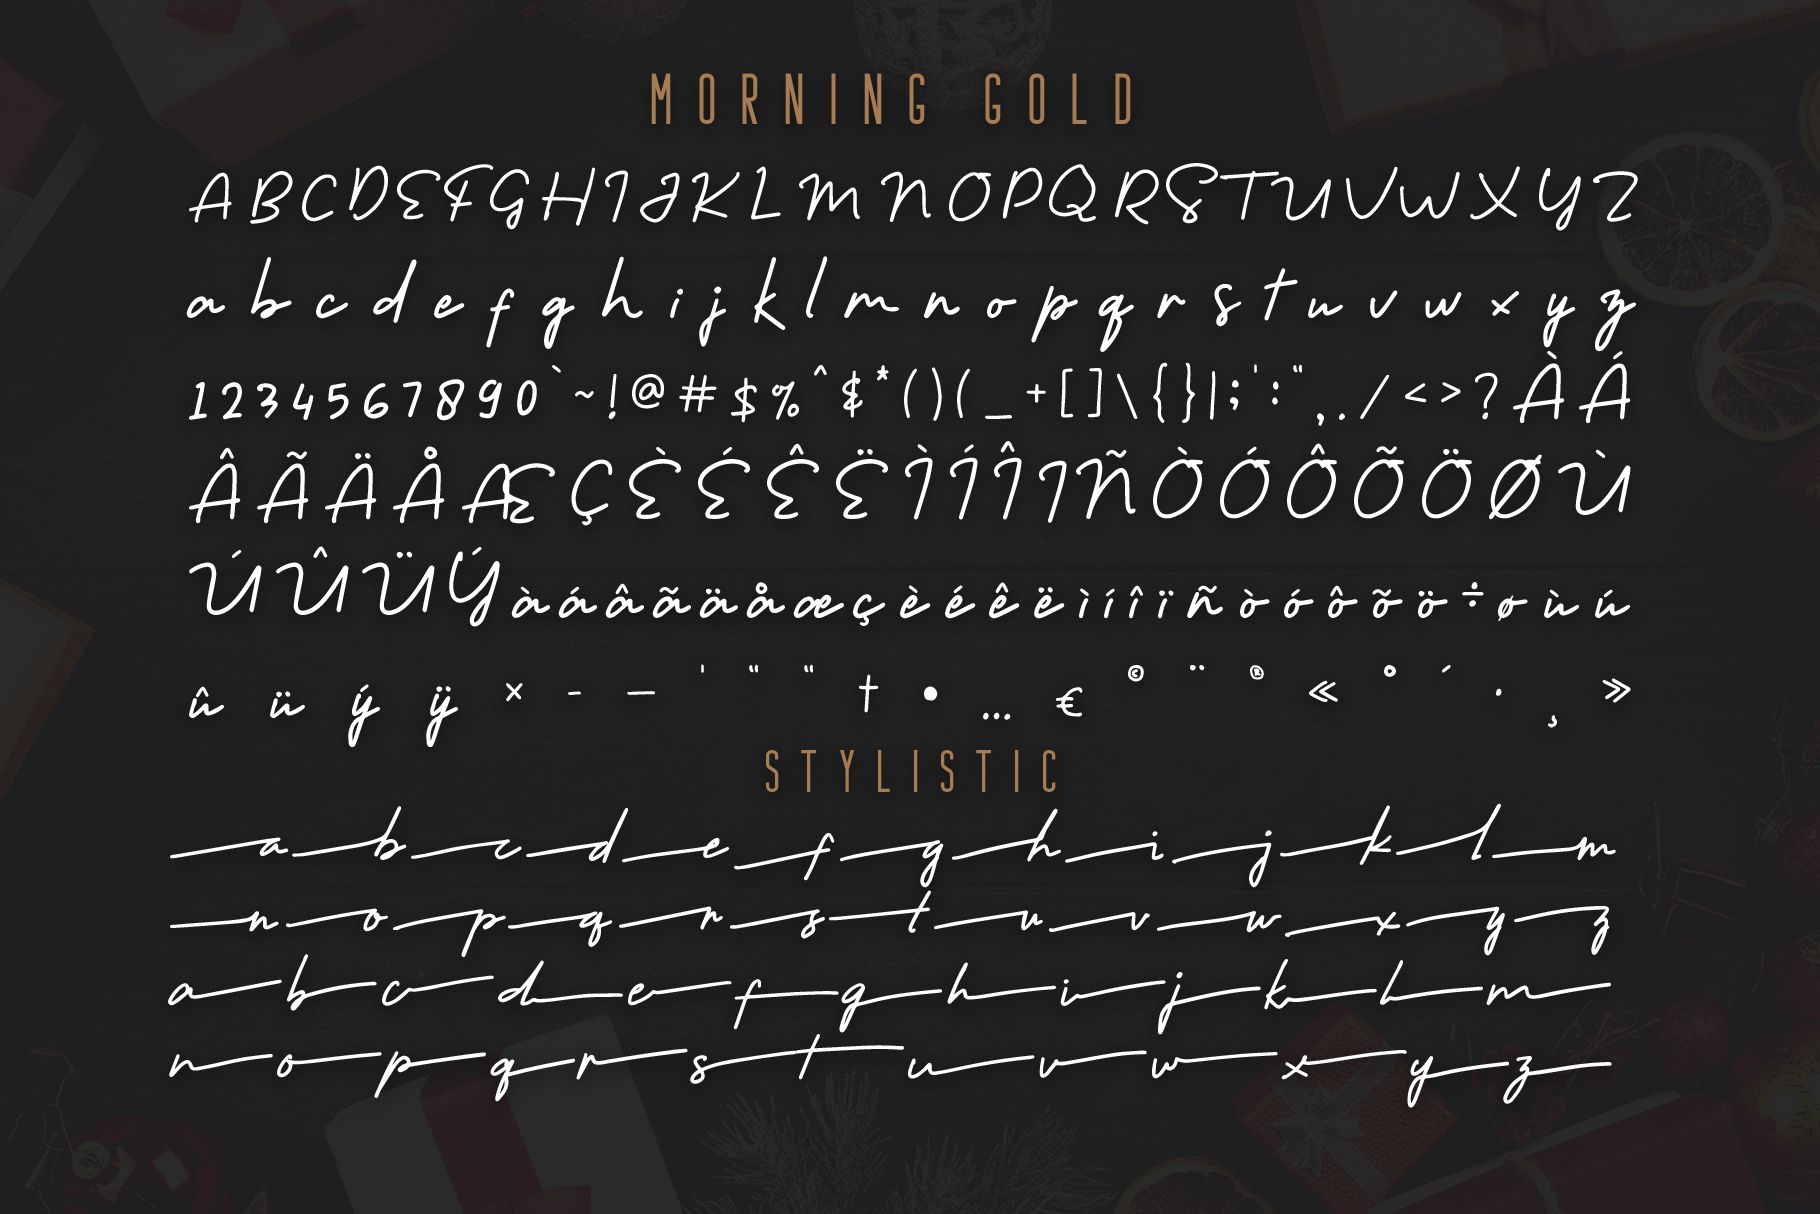 MORNING GOLD
A B C D E F G H I J K L M N O P Q R S T U V W X Y Z
a b c d e f g h i j k l m n o p q r s t u v w x y z
1 2 3 4 5 6 7 8 9 0 ` ~ ! @ # $ % ^ & * ( ) ( _ + [ ] \ { } | ; ' : " , . / < > ? À Á
Â Ã Ä Å Æ Ç È É Ê Ë Ì Í Î I Ñ Ò Ó Ô Õ Ö Ø Ù
Ú Û Ü Ý à á â ã ä å æ ç è é ê ë ì í î ï ñ ò ó ô õ ö ÷ ø ù ú
û ü ý ÿ × - — ' “ “ † • … € © ¨ ® « ° ´ · ¸ »
STYLISTIC
a b c d e f g h i j k l m
n o p q r s t u v w x y z
a b c d e f g h i j k l m
n o p q r s t u v w x y z